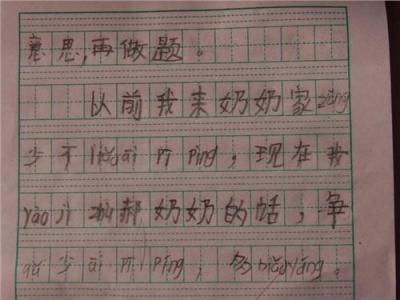 意思,再做题。
以前我来奶奶家zǒng
少不liǎoái pī píng,现在我
yào jì 奶奶的话,争
qǔ少ái pī píng,多biǎoyáng。